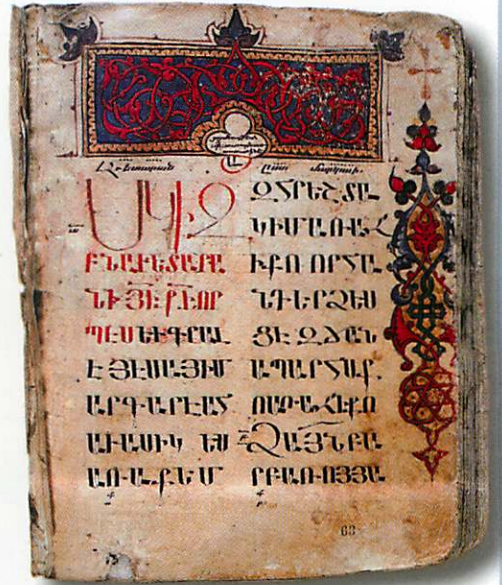 Աւետարան ըստ Մարկոսի
ՍԿԻԶ
ԲՆԱՒԵՏԱՐԱ
ՆԻ ՅԻ ՔԻ ՈՐ
ՊԷՍ ԵՒ ԳՐԵԱԼ
Է ՅԷՍԱՅԻ Մ
ԱՐԳԱՐԷԱՅ
ԱՒԱՍԻԿ ԵՍ
ԱՌԱՔԵՄ
ԶՀՐԵՇՏԱ
Կ ԻՄ ԱՌԱՋ
Ի ՔՈ ՈՐ ՀԱ
ՆԴԵՐՁԵՍ
ՑԷ ԶՃԱՆ
ԱՊԱՐՀ Ք
Ո ԱՌԱՋԻ ՔՈ
ՁԱՅՆ ԲԱ
ՐԲԱՌՈՅ ՅԱ
68